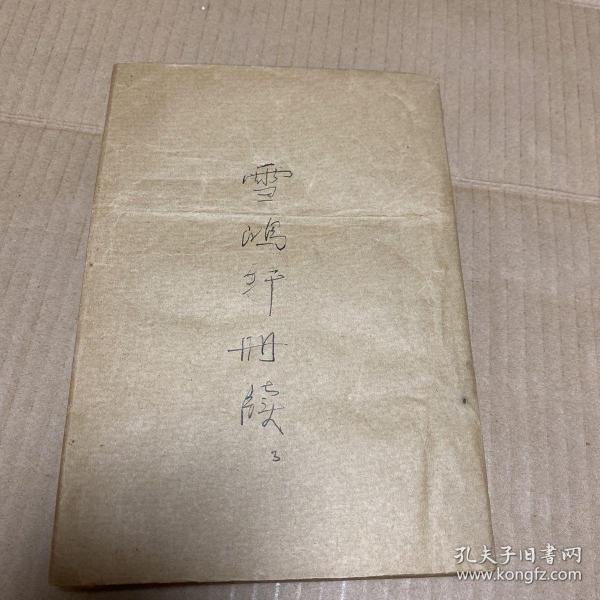 雪鸿轩册牍
3
孔夫子旧书网
www.kongfz.com